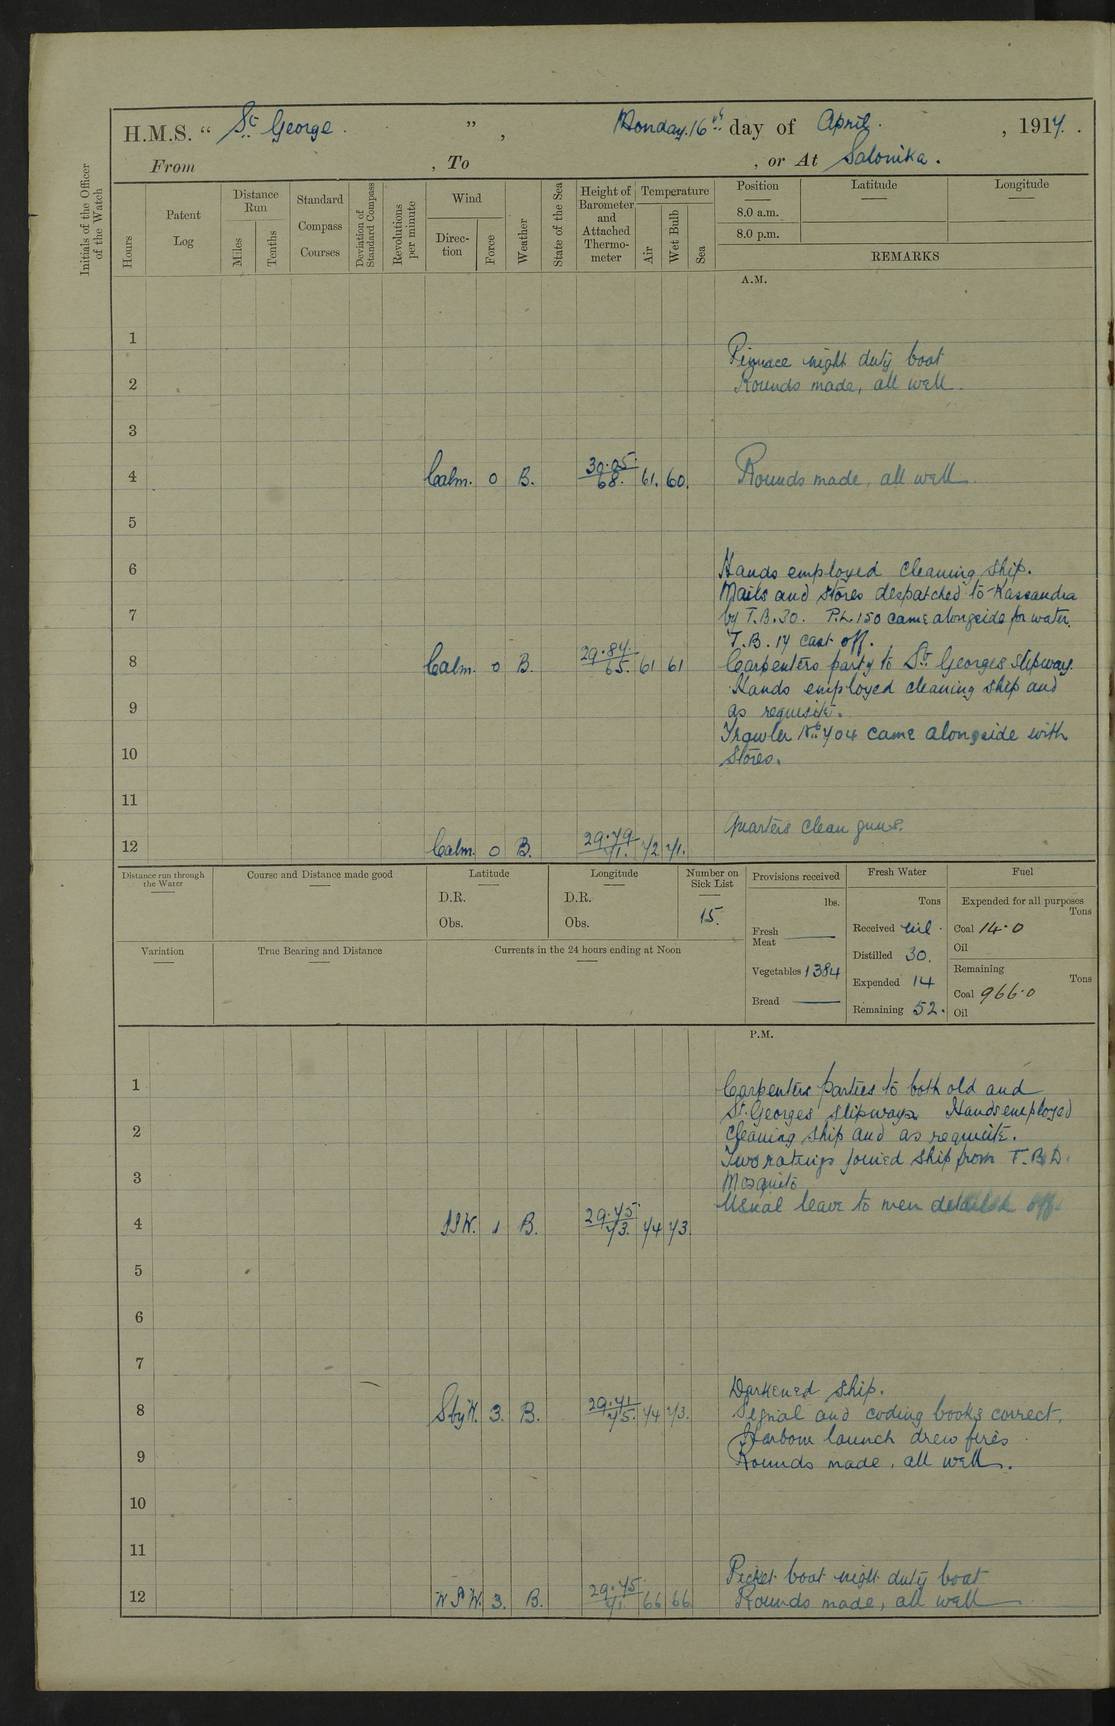 H.M.S. “ St. George. ” , Monday. 16th day of April. , 1917.
From , To , or At Salonika.
Initials of the Officer of the Watch
Hours
Patent Log
Distance Run
Miles
Tenths
Standard Compass Courses
Deviation of Standard Compass
Revolutions per minute
Wind
Direction
Force
Weather
State of the Sea
Height of Barometer and Attached Thermometer
Temperature
Air
Wet Bulb
Sea
Position Latitude Longitude
8.0 a.m.
8.0 p.m.
REMARKS
A.M.
1
Pinnace night duty boat
2 Rounds made, all well.
3
4 Calm. 0 B. 30.05. 68. 61. 60. Rounds made, all well
5
6 Hands employed cleaning ship.
Mails and stores despatched to Kassandra
7 by T.B. 30. P.L. 150 came alongside for water.
T.B. 17 cast off.
8 Calm. 0 B. 29.84. 65. 61 61 Carpenters party to St. Georges slipway.
Hands employed cleaning ship and
9 as requisite.
Trawler No. 704 came alongside with
10 stores.
11
Quarters clean guns.
12 Calm. 0 B. 29.79 71. 72 71.
Distance run through the Water
Course and Distance made good
Latitude
D.R.
Obs.
Longitude
D.R.
Obs.
Number on Sick List
15.
Provisions received
lbs.
Fresh Meat ——
Vegetables 1384
Bread ——
Fresh Water
Tons
Received nil.
Distilled 30.
Expended 14
Remaining 52.
Fuel
Expended for all purposes
Tons
Coal 14.0
Oil
Remaining
Tons
Coal 966.0
Oil
Variation
True Bearing and Distance
Currents in the 24 hours ending at Noon
P.M.
1 Carpenters parties to both old and
St. Georges slipways. Hands employed
2 cleaning ship and as requisite.
Two ratings joined ship from T.B.D.
3 Mosquito
Usual leave to men detailed off.
4 1 B. 29.75. 73. 74 73.
5
6
7
Darkened ship.
8 SbyW. 3. B. 29.71 75. 74 73. Signal and coding books correct.
Harbour launch drew fires.
9 Rounds made, all well.
10
11
Picket boat night duty boat
12 3. B. 29.75 71. 66 66 Rounds made, all well